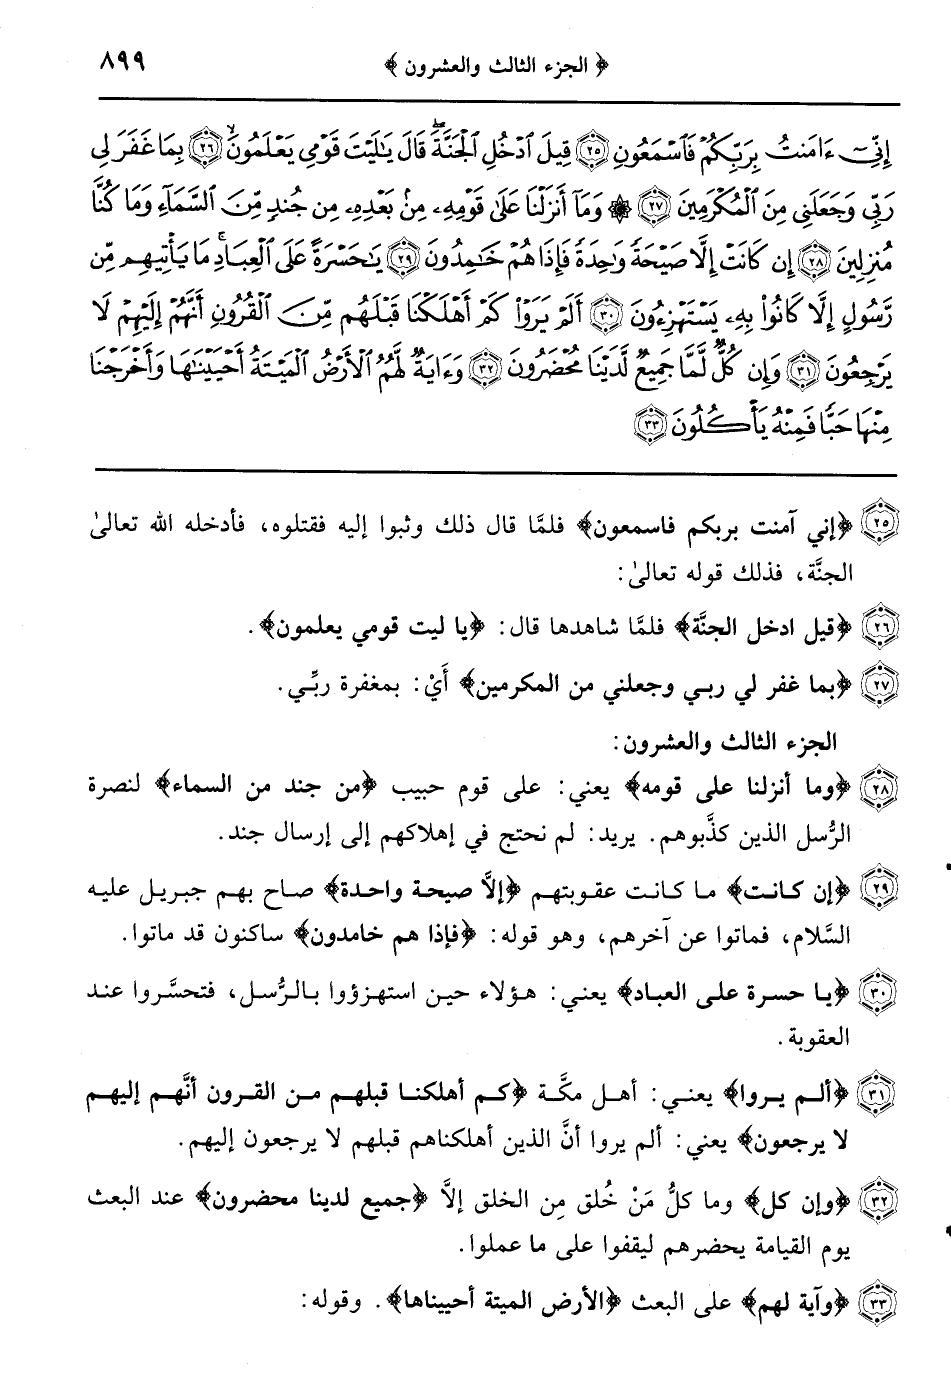 ﴿ الجزء الثالث والعشرون ﴾ ٨٩٩
إِنِّيٓ ءَامَنتُ بِرَبِّكُمۡ فَٱسۡمَعُونِ ٢٥ قِيلَ ٱدۡخُلِ ٱلۡجَنَّةَۖ قَالَ يَٰلَيۡتَ قَوۡمِي يَعۡلَمُونَۙ ٢٦ بِمَا غَفَرَ لِي
رَبِّي وَجَعَلَنِي مِنَ ٱلۡمُكۡرَمِينَ ٢٧ ۞ وَمَآ أَنزَلۡنَا عَلَىٰ قَوۡمِهِۦ مِنۢ بَعۡدِهِۦ مِن جُندٖ مِّنَ ٱلسَّمَآءِ وَمَا كُنَّا
مُنزِلِينَ ٢٨ إِن كَانَتۡ إِلَّا صَيۡحَةٗ وَٰحِدَةٗ فَإِذَا هُمۡ خَٰمِدُونَ ٢٩ يَٰحَسۡرَةً عَلَى ٱلۡعِبَادِۚ مَا يَأۡتِيهِم مِّن
رَّسُولٍ إِلَّا كَانُواْ بِهِۦ يَسۡتَهۡزِءُونَ ٣٠ أَلَمۡ يَرَوۡاْ كَمۡ أَهۡلَكۡنَا قَبۡلَهُم مِّنَ ٱلۡقُرُونِ أَنَّهُمۡ إِلَيۡهِمۡ لَا
يَرۡجِعُونَ ٣١ وَإِن كُلّٞ لَّمَّا جَمِيعٞ لَّدَيۡنَا مُحۡضَرُونَ ٣٢ وَءَايَةٞ لَّهُمُ ٱلۡأَرۡضُ ٱلۡمَيۡتَةُ أَحۡيَيۡنَٰهَا وَأَخۡرَجۡنَا
مِنۡهَا حَبّٗا فَمِنۡهُ يَأۡكُلُونَ ٣٣
٢٥ ﴿إني آمنت بربكم فاسمعون﴾ فلمَّا قال ذلك وثبوا إليه فقتلوه، فأدخله الله تعالىٰ
الجنَّة، فذلك قوله تعالىٰ:
٢٦ ﴿قيل ادخل الجنَّة﴾ فلمَّا شاهدها قال: ﴿يا ليت قومي يعلمون﴾.
٢٧ ﴿بما غفر لي ربي وجعلني من المكرمين﴾ أَيْ: بمغفرة ربِّي.
الجزء الثالث والعشرون:
٢٨ ﴿وما أنزلنا على قومه﴾ يعني: على قوم حبيب ﴿من جند من السماء﴾ لنصرة
الرُّسل الذين كذَّبوهم. يريد: لم نحتج في إهلاكهم إلى إرسال جند.
٢٩ ﴿إن كانت﴾ ما كانت عقوبتهم ﴿إلَّا صيحة واحدة﴾ صاح بهم جبريل عليه
السَّلام، فماتوا عن آخرهم، وهو قوله: ﴿فإذا هم خامدون﴾ ساكنون قد ماتوا.
٣٠ ﴿يا حسرة على العباد﴾ يعني: هؤلاء حين استهزؤوا بالرُّسل، فتحسَّروا عند
العقوبة.
٣١ ﴿ألم يروا﴾ يعني: أهل مكَّة ﴿كم أهلكنا قبلهم من القرون أنَّهم إليهم
لا يرجعون﴾ يعني: ألم يروا أنَّ الذين أهلكناهم قبلهم لا يرجعون إليهم.
٣٢ ﴿وإن كل﴾ وما كلُّ مَنْ خُلق مِن الخلق إلَّا ﴿جميع لدينا محضرون﴾ عند البعث
يوم القيامة يحضرهم ليقفوا على ما عملوا.
٣٣ ﴿وآية لهم﴾ على البعث ﴿الأرض الميتة أحييناها﴾. وقوله: